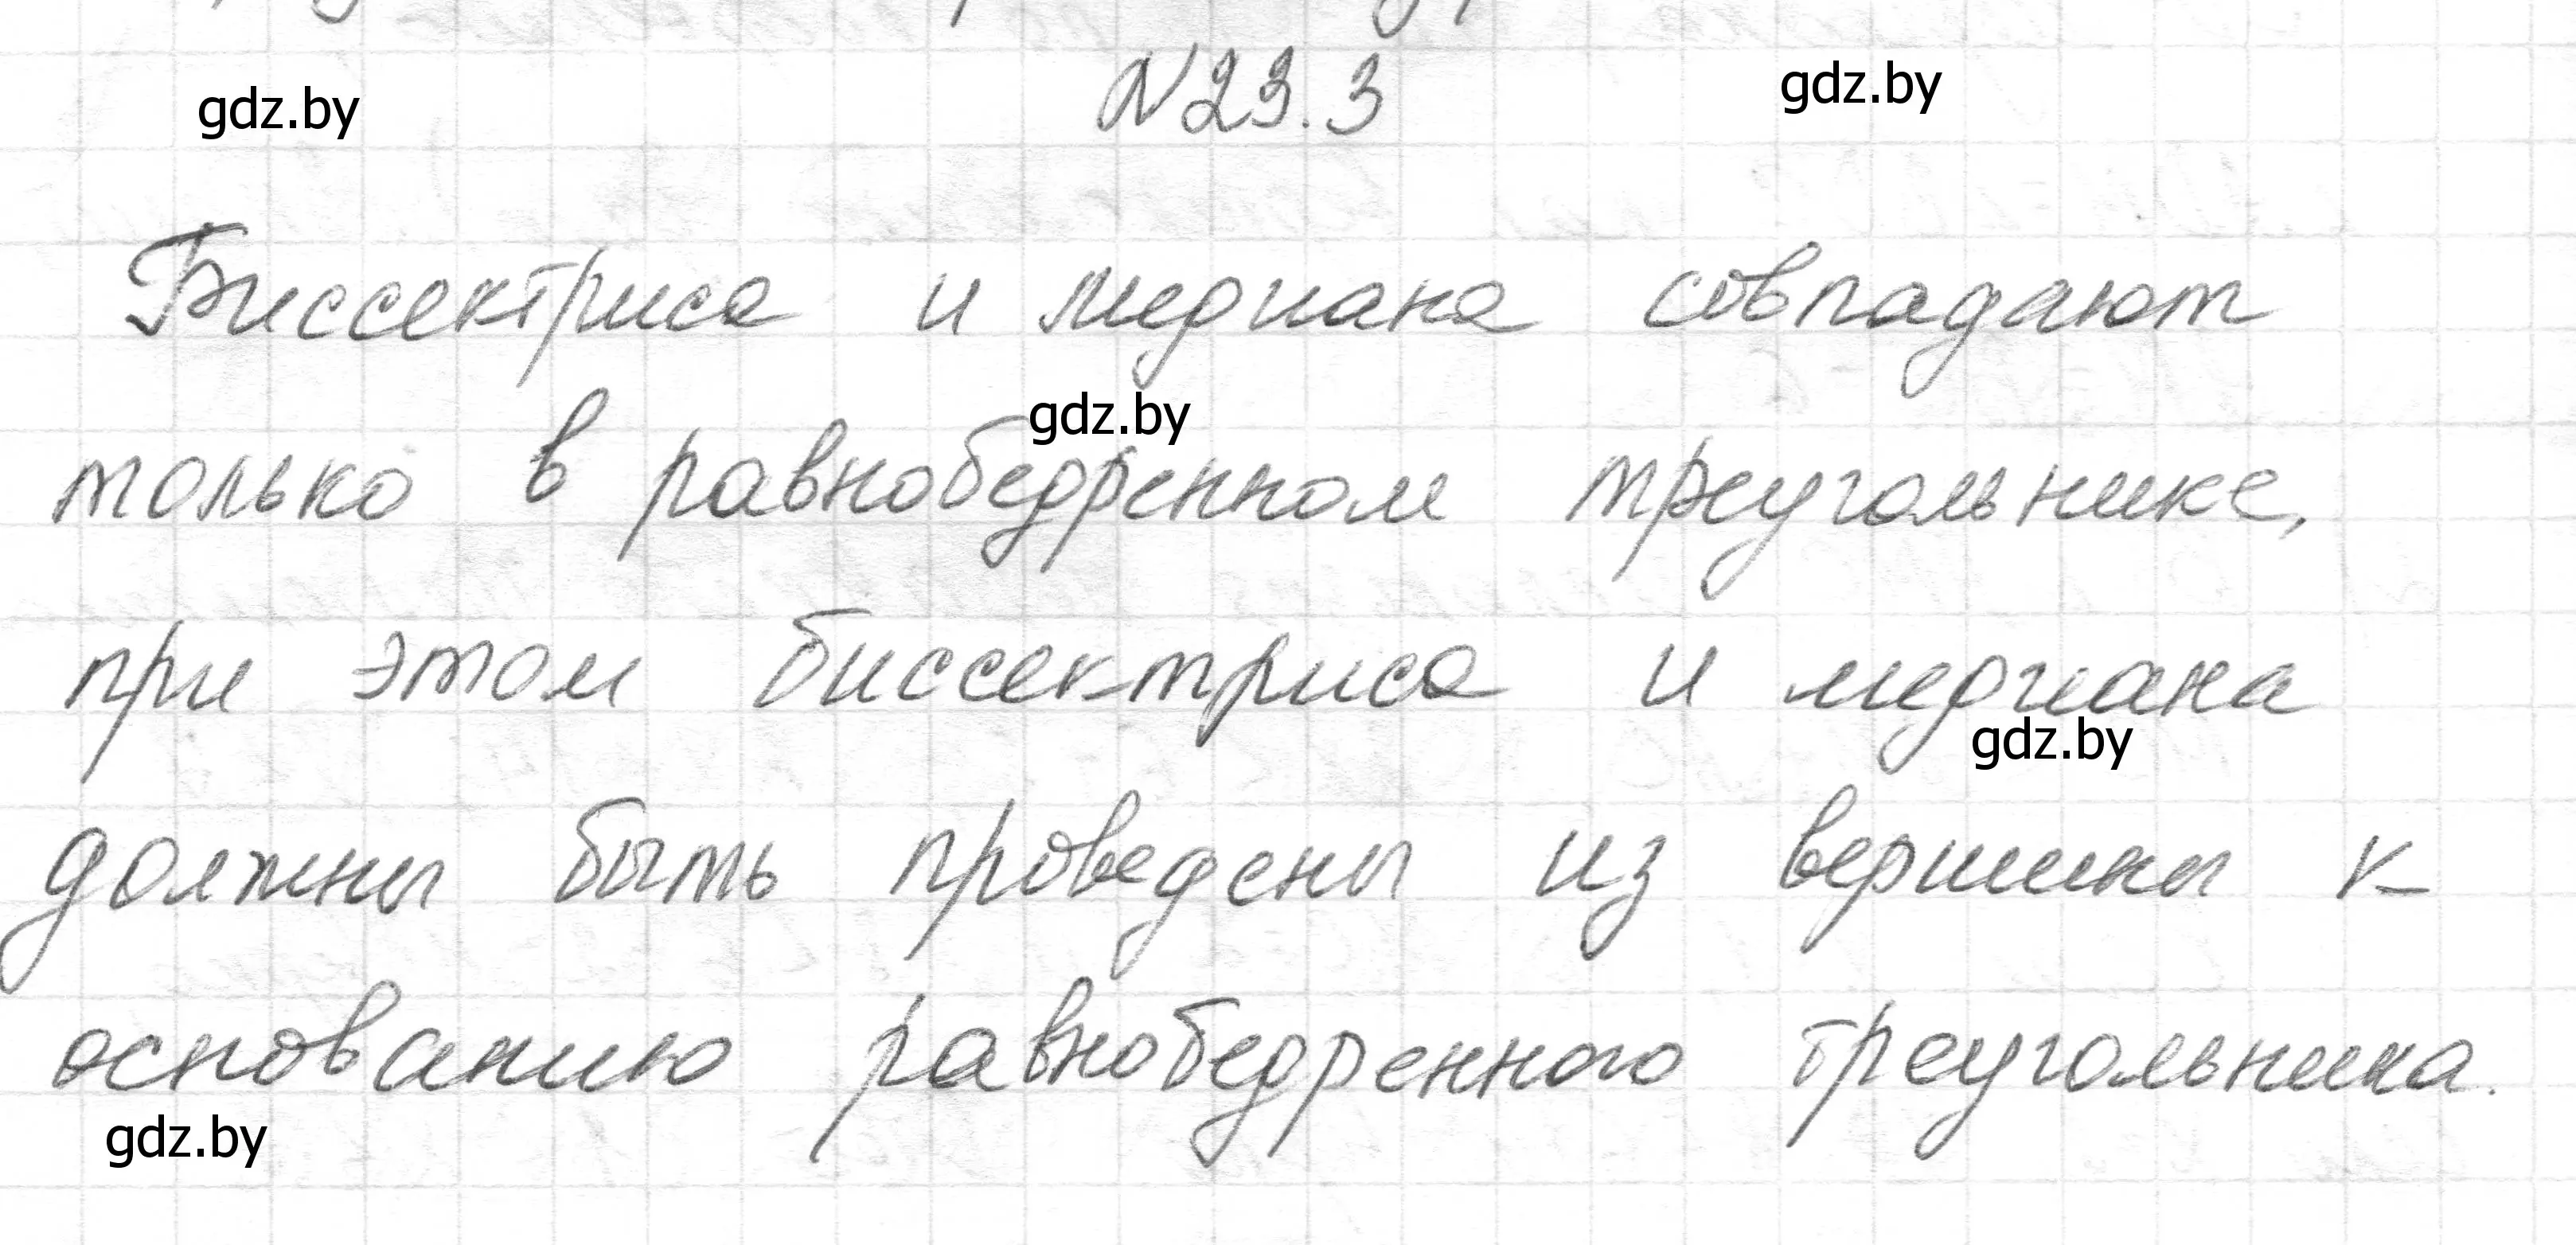 №23.3
gdz.by
gdz.by
Биссектриса и медиана совпадают
gdz.by
только в равнобедренном треугольнике,
при этом биссектриса и медиана
gdz.by
должны быть проведены из вершины к
основанию равнобедренного треугольника.
gdz.by